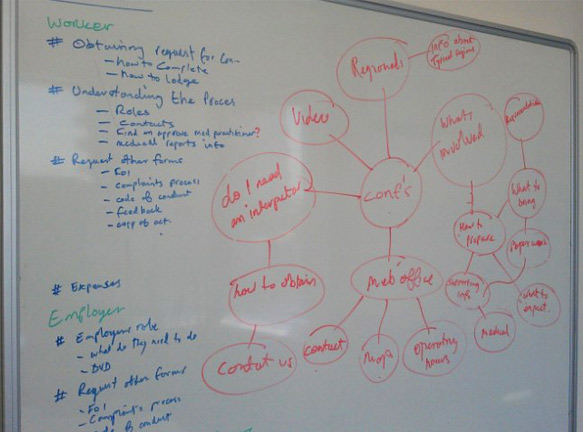 WORKER
# Obtaining request for Con-
- How to Complete
- How to lodge
# Understanding the Proces
- Roles
- Contacts
- Find an approve med practitioner?
- medical reports info
# Request other forms
- FOI
- complaints process
- code of conduct
- feedback
- copy of act.
# Expenses
Employer
# Employers role
- what do they need to do
- DVD
# Request other forms
- FOI
- Complaints process
- code of conduct
Regionals
info about
Typical regions
Video
What's
involved
Representation
do I need
an interpretor
Conf's
What to
bring
How to
prepare
Paperwork
how to obtain
Melb office
Supporting
info
what to
expect
Contact us
Contact
Map
Operating
hours
Medical